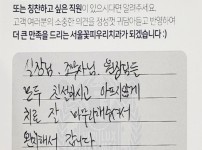 또는 칭찬하고 싶은 직원이 있으시다면 알려주세요.
고객 여러분의 소중한 의견을 정성껏 귀담아듣고 반영하여
더 큰 만족을 드리는 서울꽃미우리치과가 되겠습니다 :)
실장님, 의사님, 원장님등
모두 친절하시고 아프시않게
치료 잘 마무리해주셔서
완치해서 갑니다.